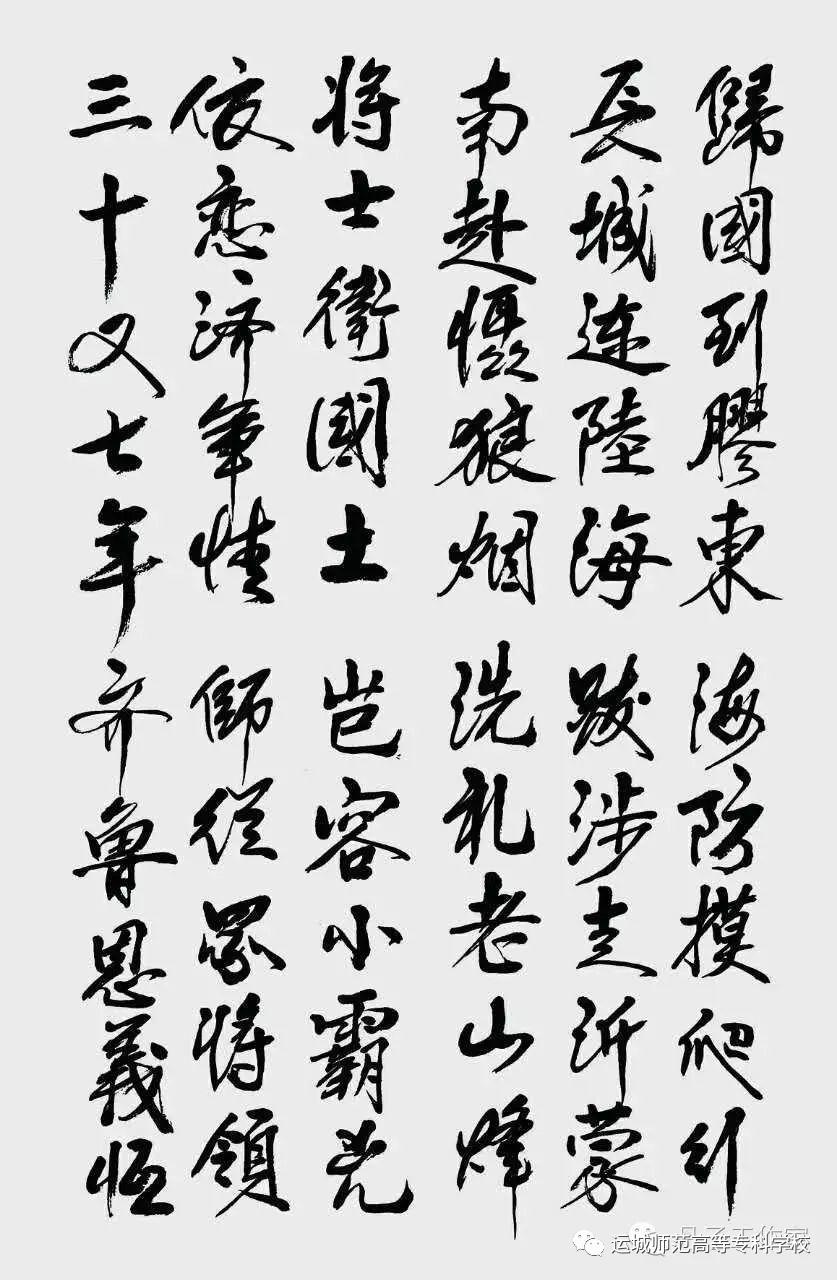 歸國到膠東 海防摸爬行
長城連陸海 跋涉走沂蒙
南赴慑狼烟 洗礼老山烽
将士衛國土 岂容小霸兇
依恋济軍情 師從眾将領
三十又七年 齐魯恩義恒
运城师范高等专科学校